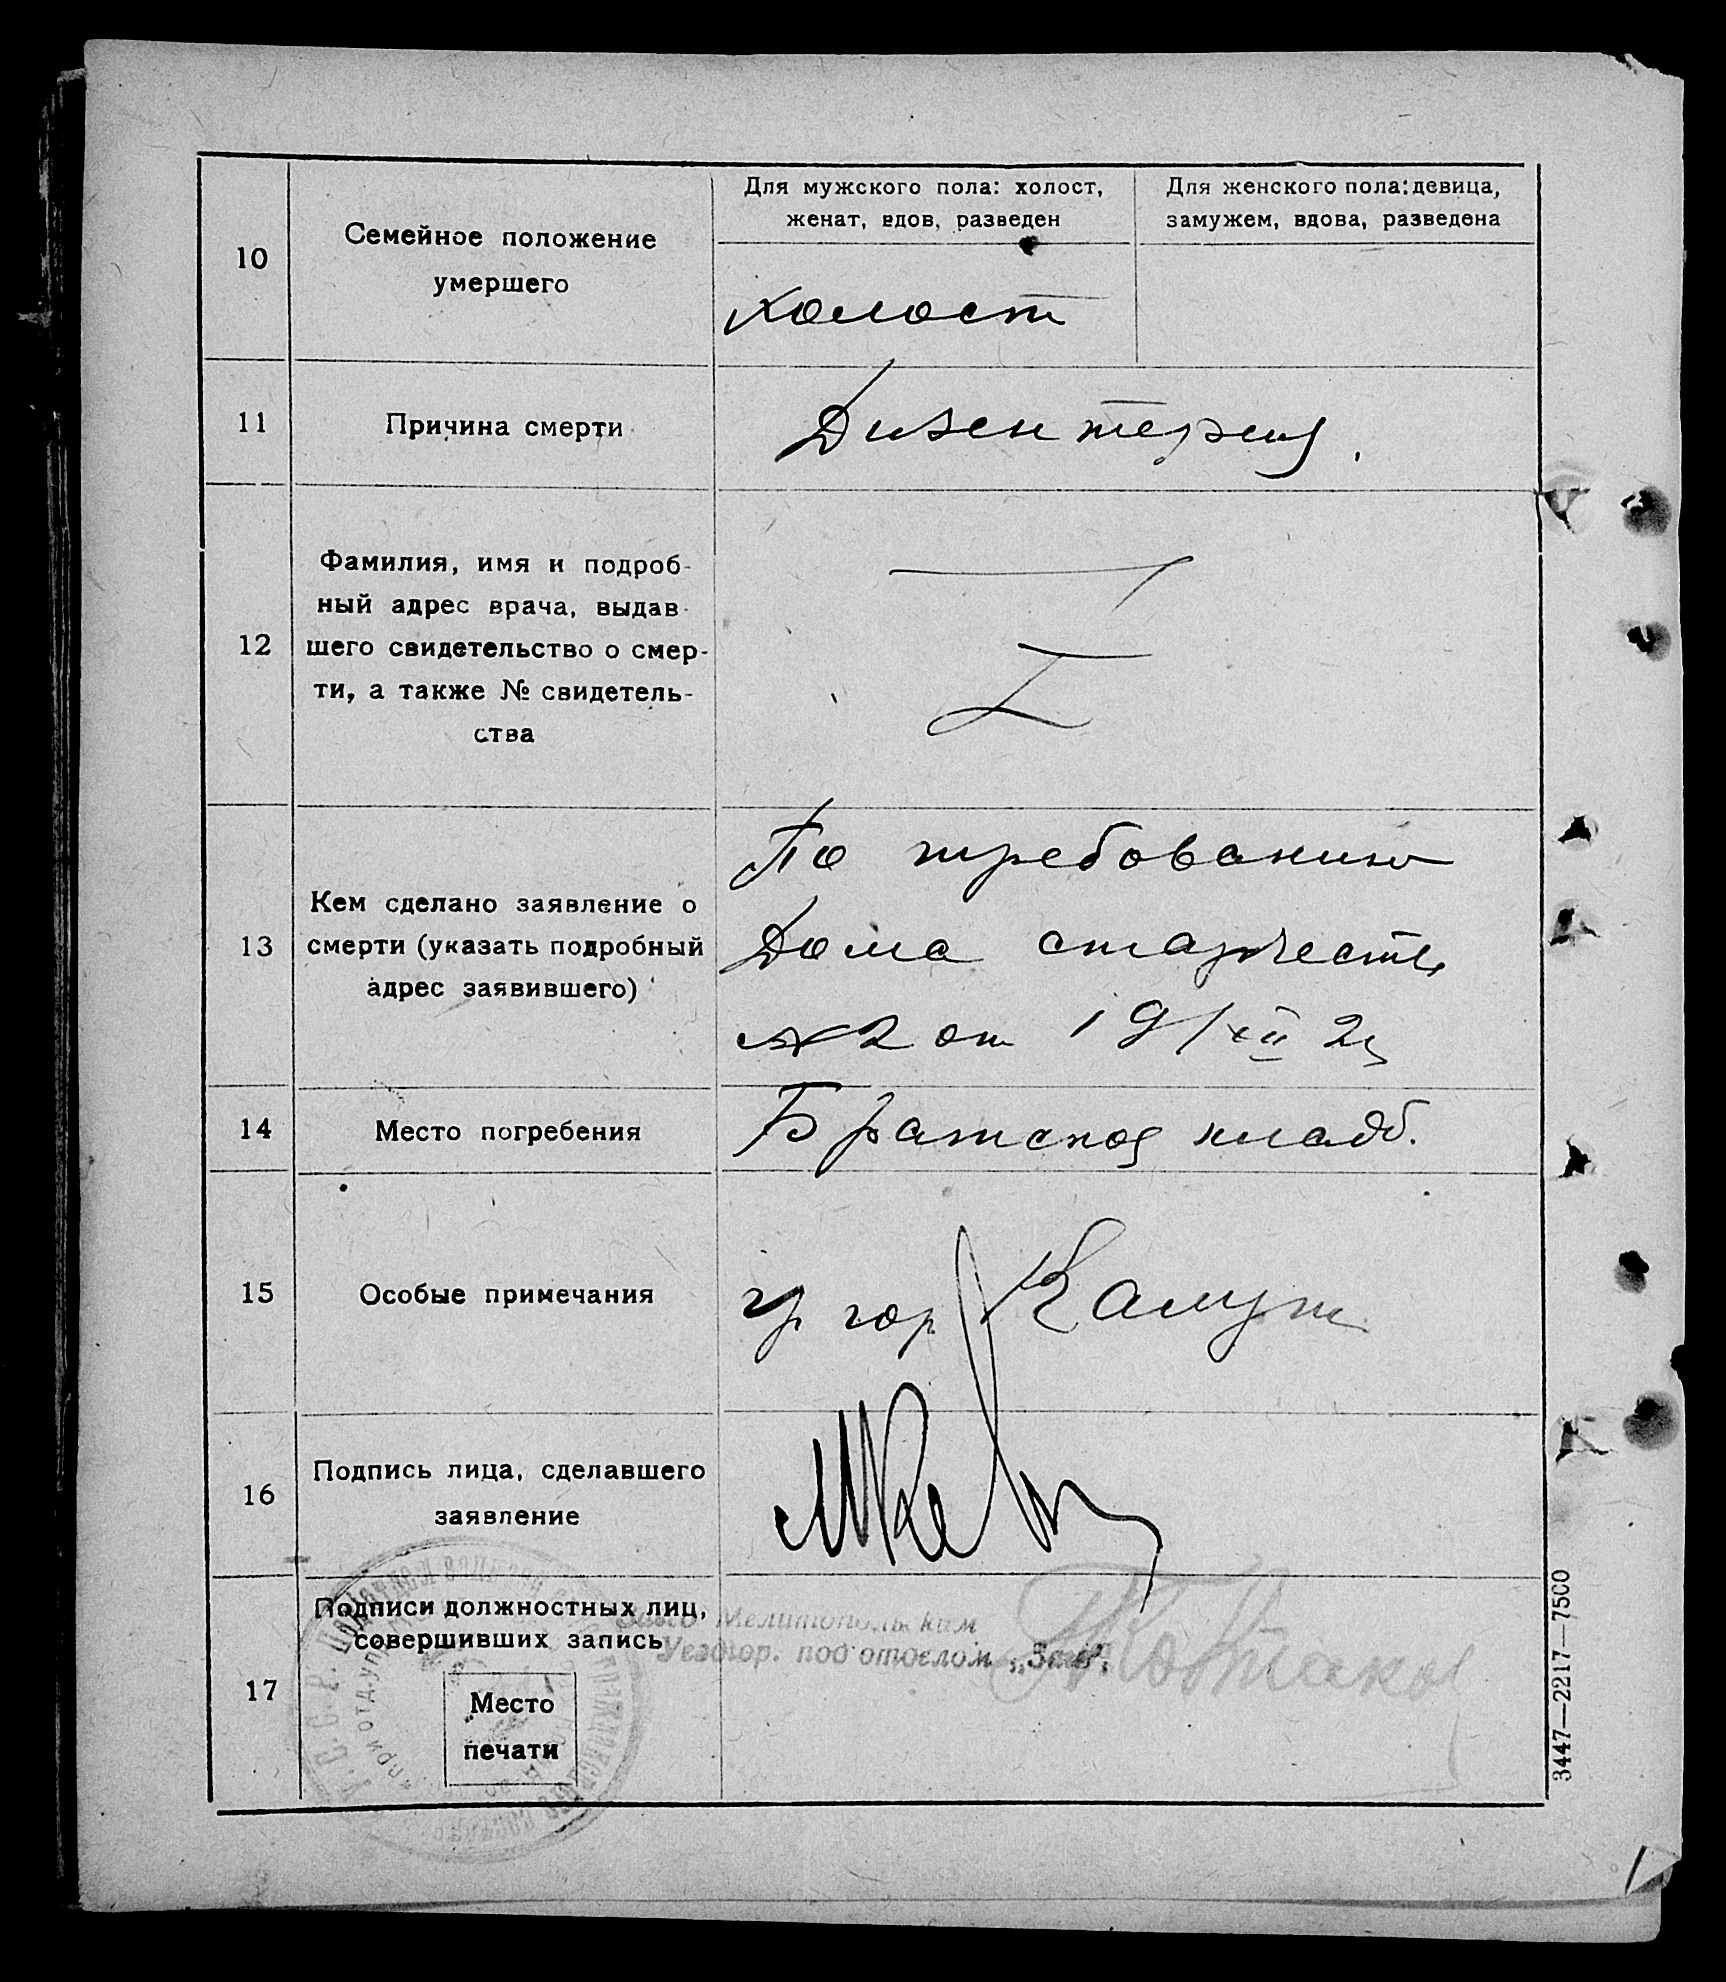 Для мужского пола: холост,
женат, вдов, разведен
Для женского пола: девица,
замужем, вдова, разведена
10
Семейное положение
умершего
холост
11
Причина смерти
Дизентерия.
12
Фамилия, имя и подроб-
ный адрес врача, выдав-
шего свидетельство о смер-
ти, а также № свидетель-
ства
13
Кем сделано заявление о
смерти (указать подробный
адрес заявившего)
По требованию
Дома
№2 от 19/XII
14
Место погребения
Братское кладб.
15
Особые примечания
гр гор
16
Подпись лица, сделавшего
заявление
17
Подписи должностных лиц,
совершивших запись
Место
печати
Мелитопольским
подотделом
3447—2217—7500